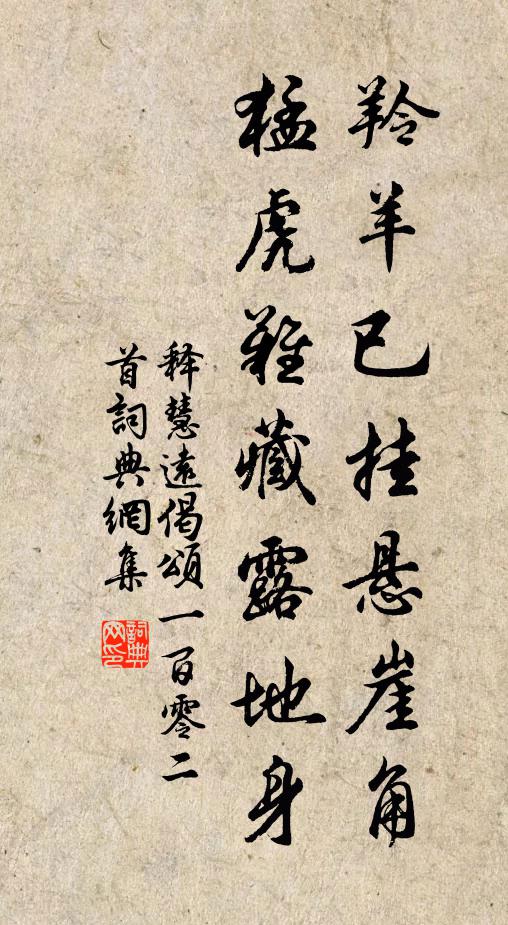 羚羊已挂悬崖角
猛虎難藏露地身
释慧遠偈頌一百零二
首詞典網集
詞典
网印